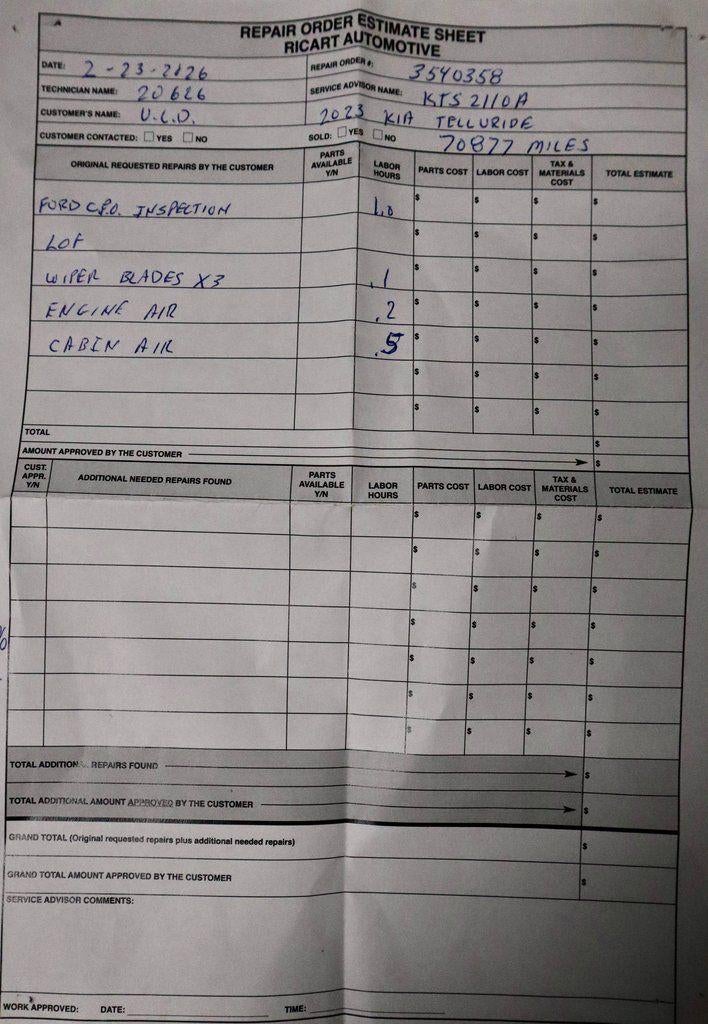 REPAIR ORDER ESTIMATE SHEET
RICART AUTOMOTIVE
DATE: 2-23-2026 REPAIR ORDER #: 3540358
TECHNICIAN NAME: 20626 SERVICE ADVISOR NAME: KTS2110A
CUSTOMER'S NAME: U.C.D. 2023 KIA TELLURIDE
CUSTOMER CONTACTED: YES NO SOLD: YES NO 70877 MILES
ORIGINAL REQUESTED REPAIRS BY THE CUSTOMER PARTS AVAILABLE Y/N LABOR HOURS PARTS COST LABOR COST TAX & MATERIALS COST TOTAL ESTIMATE
FORD C.P.O. INSPECTION 1.0 $ $ $ $
LOF $ $ $ $
WIPER BLADES X3 .1 $ $ $ $
ENGINE AIR .2 $ $ $ $
CABIN AIR .5 $ $ $ $
$ $ $ $
$ $ $ $
TOTAL $
AMOUNT APPROVED BY THE CUSTOMER $
CUST. APPR. Y/N ADDITIONAL NEEDED REPAIRS FOUND PARTS AVAILABLE Y/N LABOR HOURS PARTS COST LABOR COST TAX & MATERIALS COST TOTAL ESTIMATE
$ $ $ $
$ $ $ $
$ $ $ $
$ $ $ $
$ $ $ $
$ $ $ $
$ $ $ $
TOTAL ADDITIONAL REPAIRS FOUND $
TOTAL ADDITIONAL AMOUNT APPROVED BY THE CUSTOMER $
GRAND TOTAL (Original requested repairs plus additional needed repairs) $
GRAND TOTAL AMOUNT APPROVED BY THE CUSTOMER $
SERVICE ADVISOR COMMENTS:
WORK APPROVED: DATE: TIME: